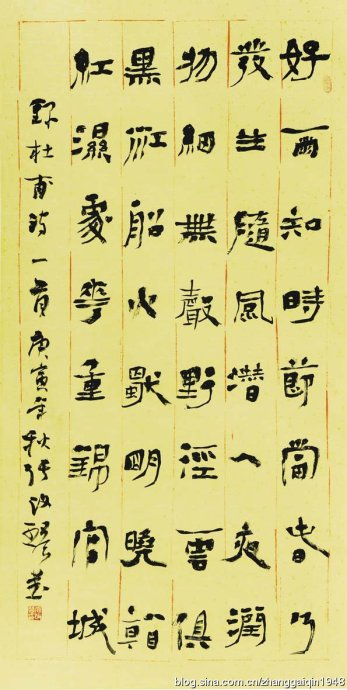 好雨知時節當春乃
發生隨風潛入夜潤
物細無聲野徑雲俱
黑江船火獨明曉看
紅濕處華重錦官城
録杜甫詩一首庚寅年秋張改琴書
blog.sina.com.cn/zhanggaiqin1948